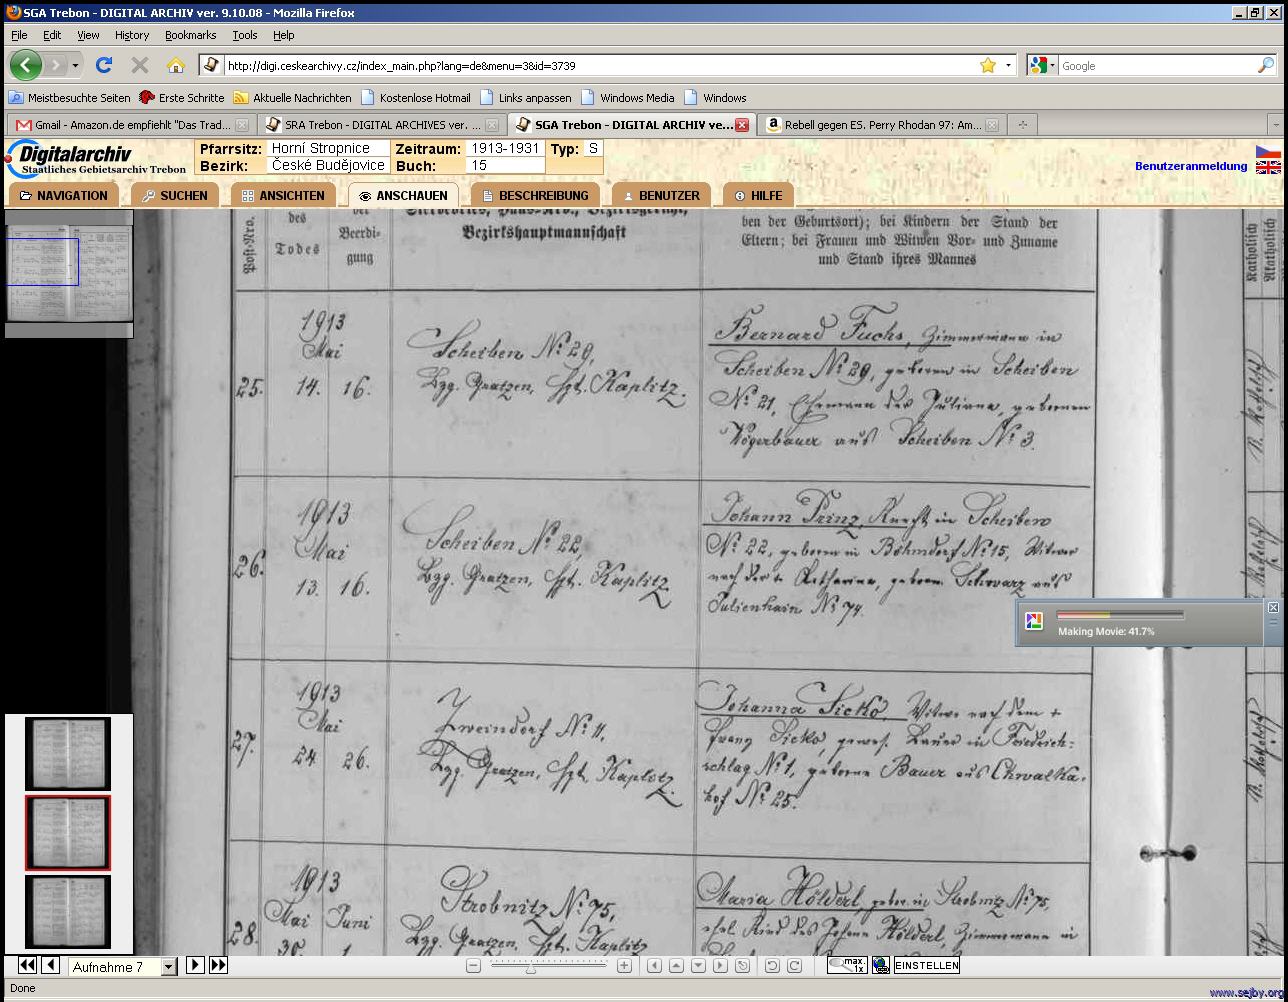 SGA Trebon - DIGITAL ARCHIV ver. 9.10.08 - Mozilla Firefox
File Edit View History Bookmarks Tools Help
http://digi.ceskearchivy.cz/index_main.php?lang=de&menu=3&id=3739
Google
Meistbesuchte Seiten Erste Schritte Aktuelle Nachrichten Kostenlose Hotmail Links anpassen Windows Media Windows
Gmail - Amazon.de empfiehlt "Das Trad... SRA Trebon - DIGITAL ARCHIVES ver. ... SGA Trebon - DIGITAL ARCHIV ve... Rebell gegen ES. Perry Rhodan 97: Am...
Digitalarchiv
Staatliches Gebietsarchiv Trebon
Pfarrsitz: Horní Stropnice Zeitraum: 1913-1931 Typ: S
Bezirk: České Budějovice Buch: 15
Benutzeranmeldung
NAVIGATION SUCHEN ANSICHTEN ANSCHAUEN BESCHREIBUNG BENUTZER HILFE
Post-Nro.
des Todes
der Beerdi-
gung
Bezirkshauptmannschaft
ben der Geburtsort); bei Kindern der Stand der
Eltern; bei Frauen und Witwen Vor- und Zuname
und Stand ihres Mannes
Katholisch
Akatholisch
25.
1913
Mai
14. 16.
Scheiben No. 29,
Bzg. Gratzen, Hpt. Kaplitz.
Bernard Fuchs, Zimmermann in
Scheiben No. 29, geboren in Scheiben
No. 21, Ehemann der Juliana, gebornen
Högerbauer aus Scheiben No. 3.
26.
1913
Mai
13. 16.
Scheiben No. 22,
Bzg. Gratzen, Hpt. Kaplitz
Johann Prinz, Knecht in Scheiben
No. 22, geboren in Böhmdorf No. 15, Witwer
nach der + Katharina, geborn. Schwarz aus
Julienhain No. 74.
27.
1913
Mai
24. 26.
Zweindorf No. 11,
Bzg. Gratzen, Hpt. Kaplitz.
Johanna Sicko, Witwe nach dem +
Franz Sicko, gewes. Bauer in Friedrich-
schlag No. 1, geborne Bauer aus Chwalka-
hof No. 25.
28.
1913
Mai Juni
30. 1.
Strobnitz No. 75,
Bzg. Gratzen, Hpt. Kaplitz
Maria Hölderl, gebor. in Strobnitz No. 75,
ehel. Kind des Johann Hölderl, Zimmermann in
Making Movie: 41.7%
Aufnahme 7
max. 1x
EINSTELLEN
Done
www.sejby.org